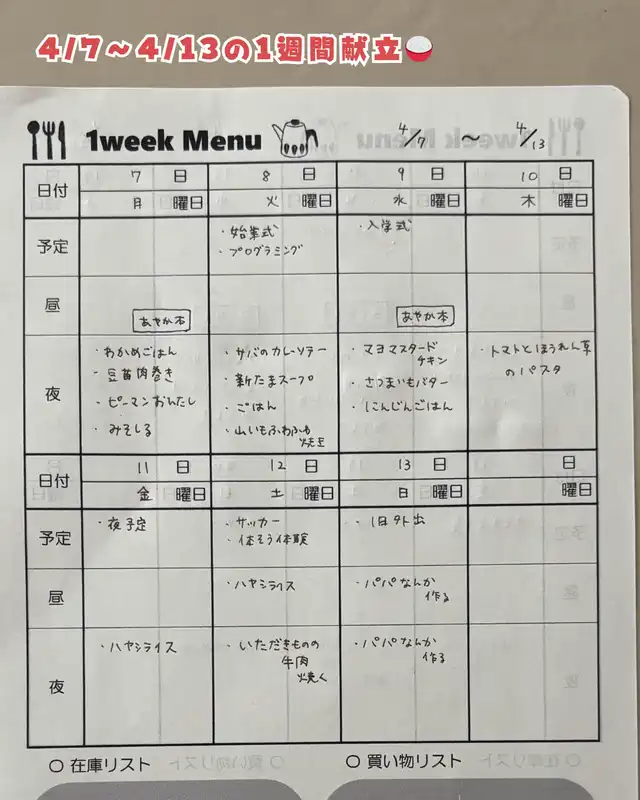 4/7～4/13の1週間献立
1week Menu
4/7 ～ 4/13
日付
7 日
8 日
9 日
10 日
月 曜日
火 曜日
水 曜日
木 曜日
予定
・始業式
・プログラミング
・入学式
昼
あやか本
あやか本
夜
・わかめごはん
・豆苗肉巻き
・ピーマンおひたし
・みそしる
・サバのカレーソテー
・新たまスープ
・ごはん
・山いもふわふわ
焼き
・マヨマスタード
チキン
・さつまいもバター
・にんじんごはん
・トマトとほうれん草
のパスタ
日付
11 日
12 日
13 日
日
金 曜日
土 曜日
日 曜日
曜日
予定
・夜予定
・サッカー
・体そう体験
・1日外出
昼
・ハヤシライス
・パパなんか
作る
夜
・ハヤシライス
・いただきものの
牛肉
焼く
・パパなんか
作る
○ 在庫リスト
○ 買い物リスト